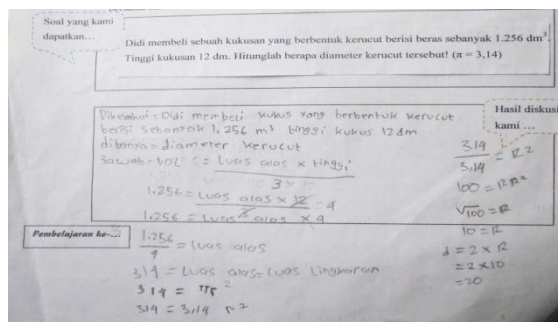 Soal yang kami
dapatkan…
Didi membeli sebuah kukusan yang berbentuk kerucut berisi beras sebanyak 1.256 dm³.
Tinggi kukusan 12 dm. Hitunglah berapa diameter kerucut tersebut! (π = 3,14)
Hasil diskusi
kami …
Diketahui = Didi membeli kukus yang berbentuk kerucut
berisi sebanyak 1.256 m³ tinggi kukus 12 dm
ditanya = diameter kerucut
Jawab = VOL = Luas alas × tinggi
3
1.256 = Luas alas × 12 = 4
3
1.256 = Luas alas × 4
Pembelajaran ke-
1.256
4
= Luas alas
314 = Luas alas = Luas Lingkaran
314 = πr²
314 = 3,14 r²
314
3,14
= R²
100 = R²
√100 = R
10 = R
d = 2 × R
= 2×10
= 20